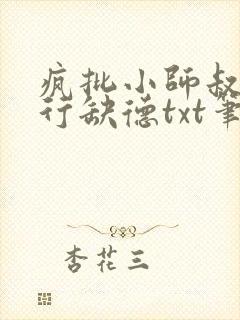 疯批小师叔
行缺德txt笔
杏花三